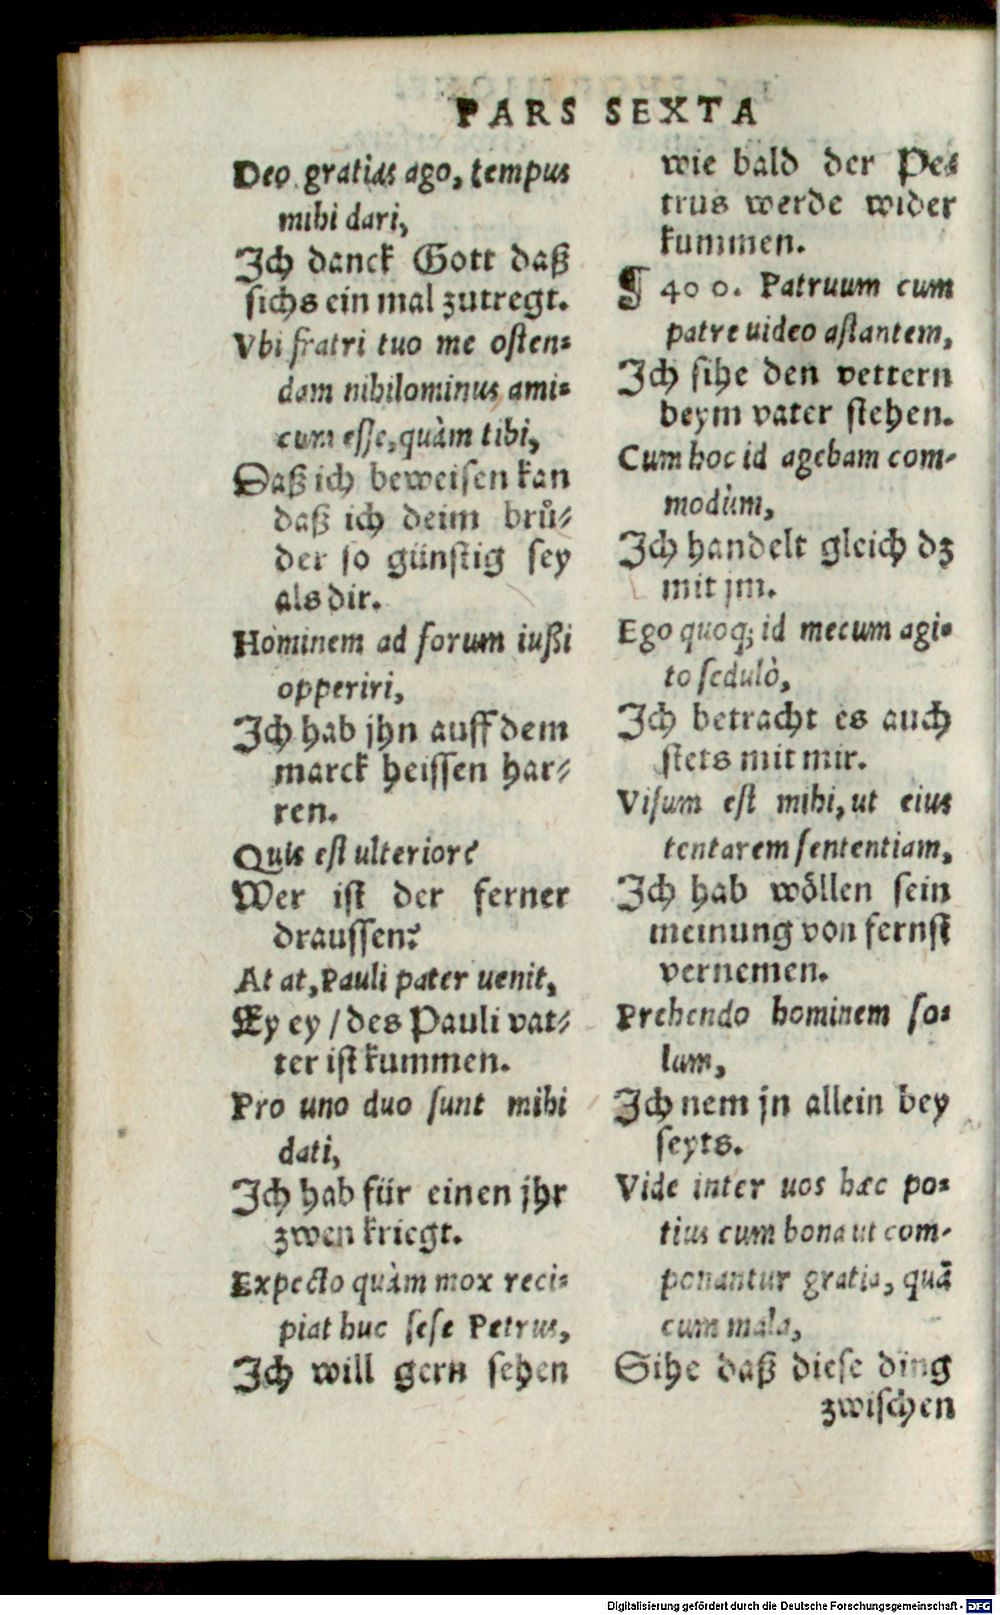 PARS SEXTA
Deo gratias ago, tempus
mihi dari,
Ich danck Gott daß
sichs ein mal zutregt.
Vbi fratri tuo me osten⸗
dam nihilominus ami⸗
cum esse, quàm tibi,
Daß ich beweisen kan
daß ich deim brů⸗
der so günstig sey
als dir.
Hominem ad forum iußi
opperiri,
Ich hab jhn auff dem
marck heissen har⸗
ren.
Quis est ulterior?
Wer ist der ferner
draussen?
At at, Pauli pater uenit,
Ey ey / des Pauli vat⸗
ter ist kummen.
Pro uno duo sunt mihi
dati,
Ich hab für einen jhr
zwen kriegt.
Expecto quàm mox reci⸗
piat huc sese Petrus,
Ich will gern sehen
wie bald der Pe⸗
trus werde wider
kummen.
¶ 400. Patruum cum
patre uideo astantem,
Ich sihe den vettern
beym vater stehen.
Cum hoc id agebam com-
modùm,
Ich handelt gleich dz
mit jm.
Ego quoq; id mecum agi⸗
to sedulò,
Ich betracht es auch
stets mit mir.
Visum est mihi, ut eius
tentarem sententiam,
Ich hab wöllen sein
meinung von fernst
vernemen.
Prehendo hominem so⸗
lum,
Ich nem jn allein bey
seyts.
Vide inter uos hæc po⸗
tius cum bona ut com-
ponantur gratia, quã
cum mala,
Sihe daß diese ding
zwischen
Digitalisierung gefördert durch die Deutsche Forschungsgemeinschaft - DFG